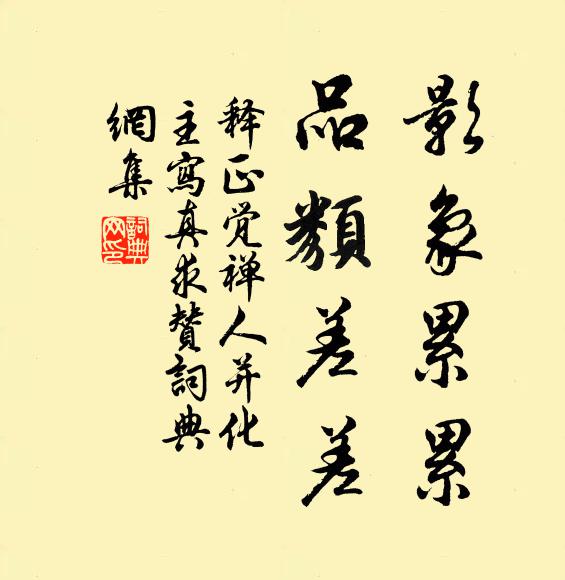 影象累累
品類差差
释正觉禅人并化
主寫真求赞詞典
網集
詞典
网印